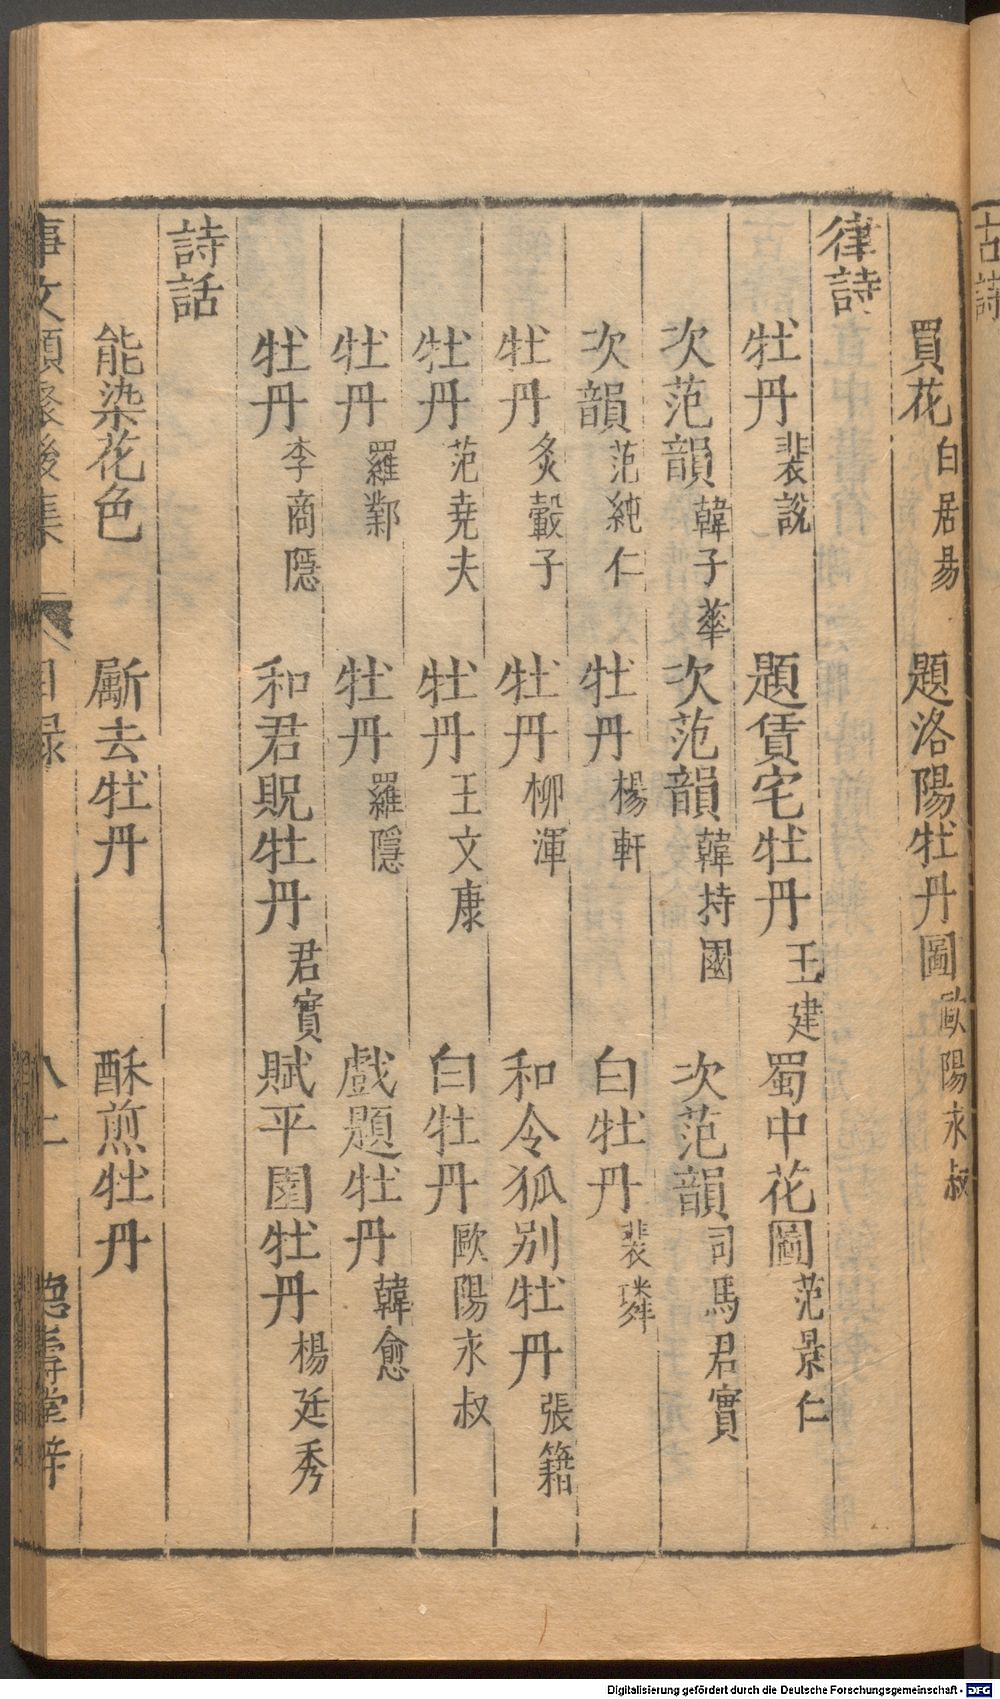 古詩
買花 白居昜 題洛陽牡丹圖 歐陽永叔
律詩
牡丹 裴說 題賃宅牡丹 王建 蜀中花圖 范景仁
次范韻 韓子華 次范韻 韓持國 次范韻 司馬君實
次韻 范純仁 牡丹 楊軒 白牡丹 裴璘
牡丹 炙轂子 牡丹 柳渾 和令狐别牡丹 張籍
牡丹 范堯夫 牡丹 王文康 白牡丹 歐陽永叔
牡丹 羅鄴 牡丹 羅隱 戲題牡丹 韓愈
牡丹 李商隱 和君貺牡丹 君實 賦平園牡丹 楊廷秀
詩話
能染花色 斸去牡丹 酥煎牡丹
事文類聚後集 目録 德壽堂梓
Digitalisierung gefördert durch die Deutsche Forschungsgemeinschaft - DFG